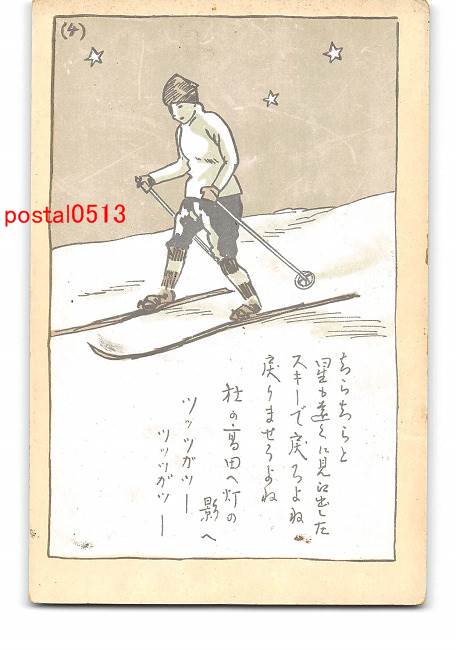 (4)
ちらちらと
星も遠くに見え出した
スキーで戻ろよね
戻りませうよね
杜の高田へ灯の
影へ
ツッツガツー
ツッツガツー
postal0513